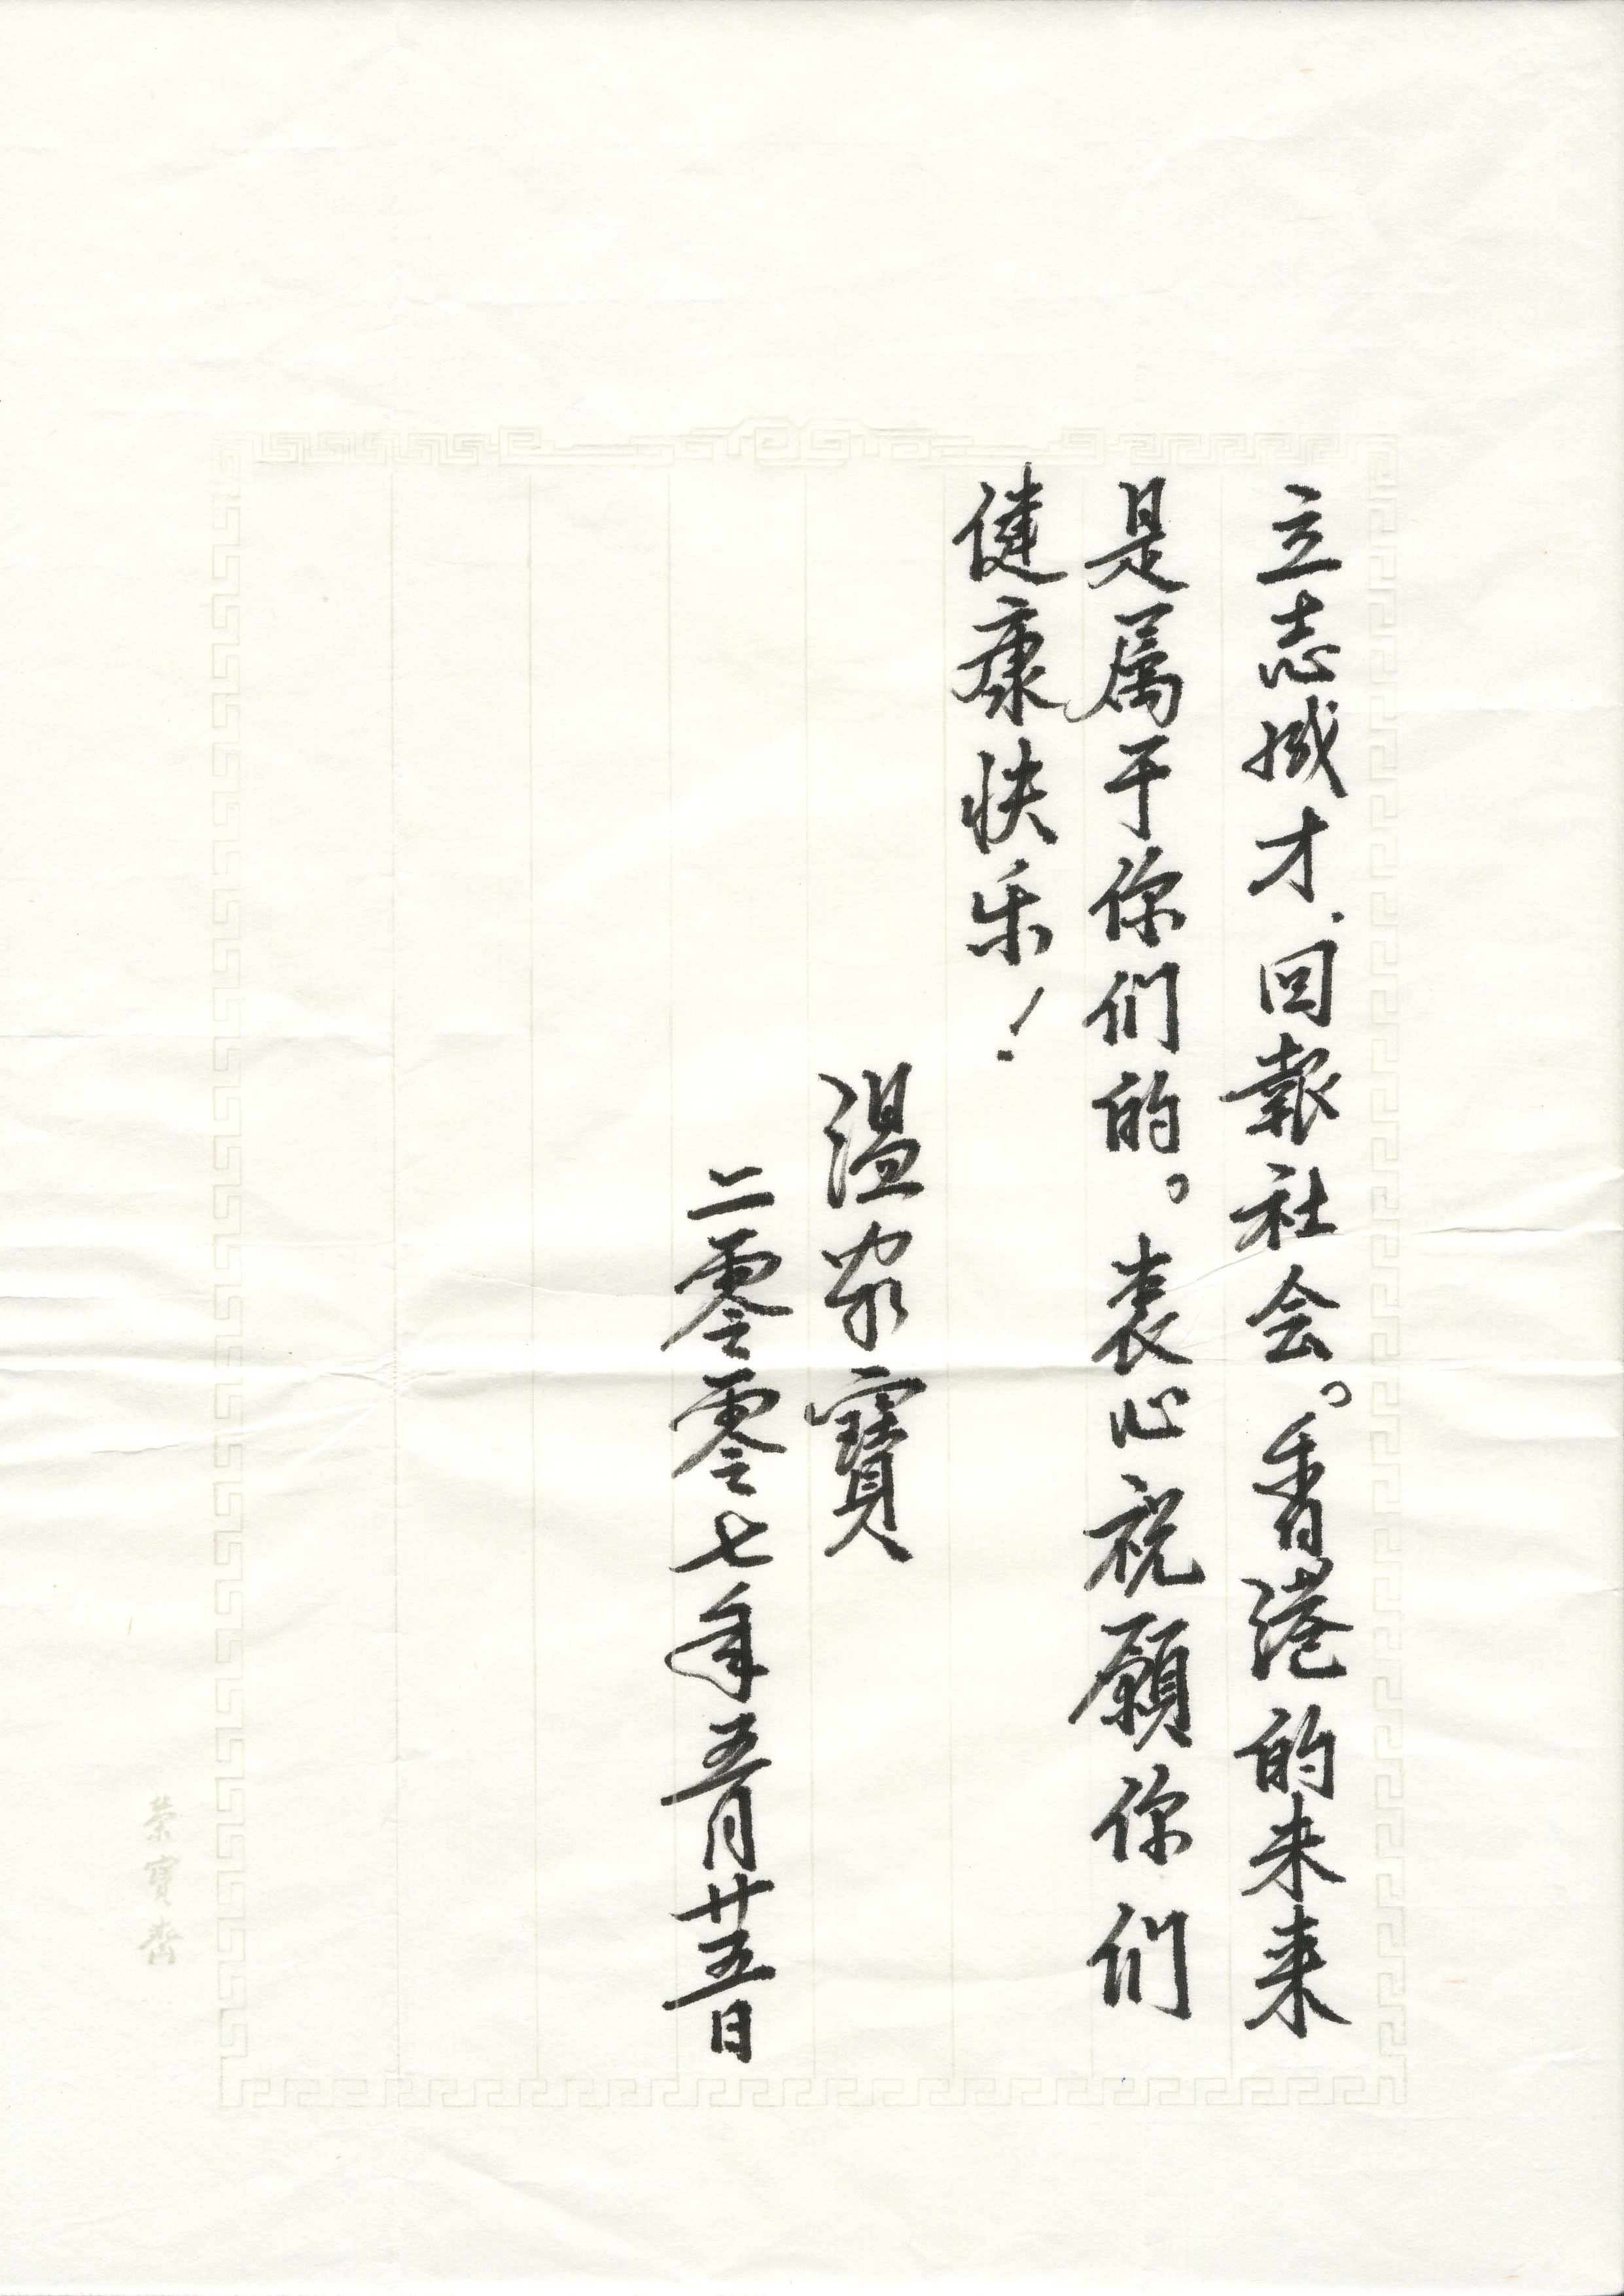 立志成才，回報社会。香港的未来
是属于你们的。衷心祝願你们
健康快乐！
温家寶
二零零七年五月廿五日
荣寶齋